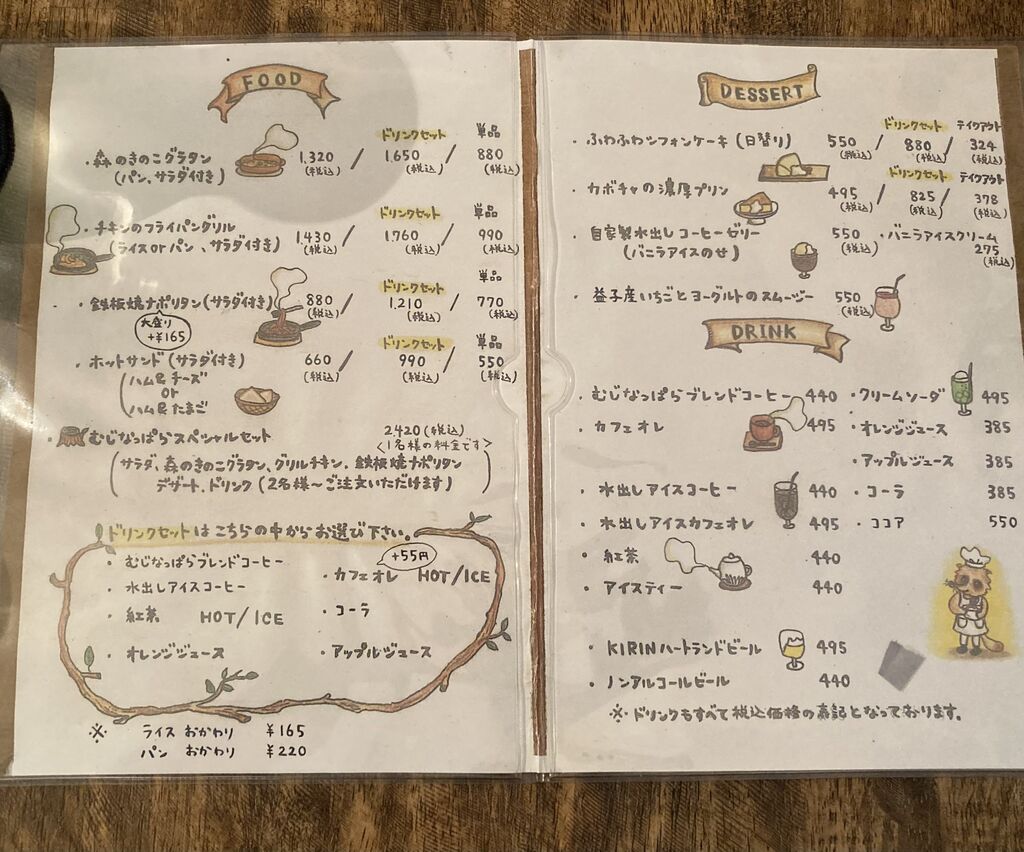 FOOD
ドリンクセット 単品
・森のきのこグラタン 1,320 / 1,650 / 880
(パン、サラダ付き) (税込) (税込) (税込)
ドリンクセット 単品
・チキンのフライパングリル 1,430 / 1,760 / 990
(ライスorパン、サラダ付き) (税込) (税込) (税込)
ドリンクセット 単品
・鉄板焼ナポリタン(サラダ付き) 880 / 1,210 / 770
(税込) (税込) (税込)
大盛り
+¥165
ドリンクセット 単品
・ホットサンド(サラダ付き) 660 / 990 / 550
(税込) (税込) (税込)
(ハム&チーズ
or
ハム&たまご
・むじなっぱらスペシャルセット 2420(税込)
<1名様の料金です>
(サラダ、森のきのこグラタン、グリルチキン、鉄板焼ナポリタン
デザート、ドリンク(2名様〜ご注文いただけます))
ドリンクセットはこちらの中からお選び下さい。
+55円
・むじなっぱらブレンドコーヒー
・カフェオレ HOT/ICE
・水出しアイスコーヒー
・紅茶 HOT/ICE
・コーラ
・オレンジジュース
・アップルジュース
※ ライス おかわり ¥165
パン おかわり ¥220
DESSERT
ドリンクセット テイクアウト
・ふわふわシフォンケーキ(日替り) 550 / 880 / 324
(税込) (税込) (税込)
ドリンクセット テイクアウト
・カボチャの濃厚プリン 495 / 825 / 378
(税込) (税込) (税込)
・自家製水出しコーヒーゼリー 550
(バニラアイスのせ) (税込)
・バニラアイスクリーム
275
(税込)
・益子産いちごとヨーグルトのスムージー 550
(税込)
DRINK
・むじなっぱらブレンドコーヒー 440
・クリームソーダ 495
・カフェオレ 495
・オレンジジュース 385
・アップルジュース 385
・水出しアイスコーヒー 440
・コーラ 385
・水出しアイスカフェオレ 495
・ココア 550
・紅茶 440
・アイスティー 440
・KIRINハートランドビール 495
・ノンアルコールビール 440
※ドリンクもすべて税込価格の表記となっております。